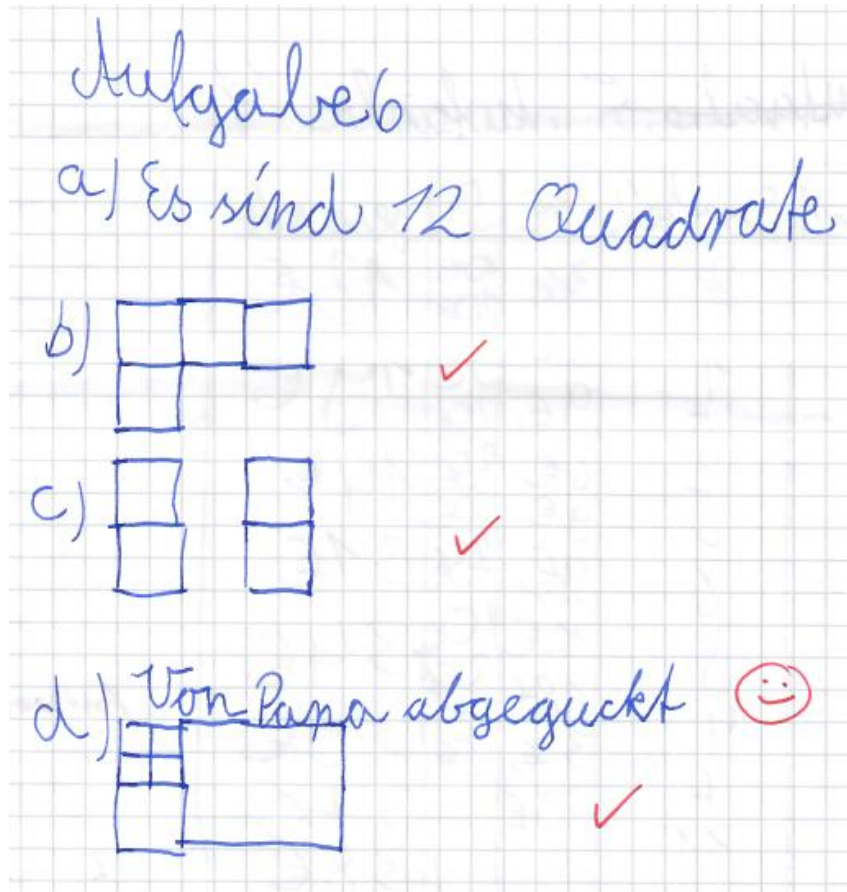 Aufgabe 6
a) Es sind 12 Quadrate
b)
c)
d) Von Papa abgeguckt